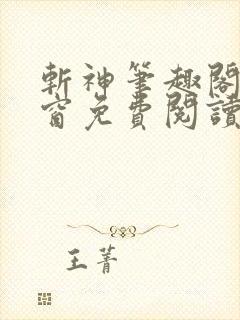 斬神筆趣閣
窗免費閱讀
王菁